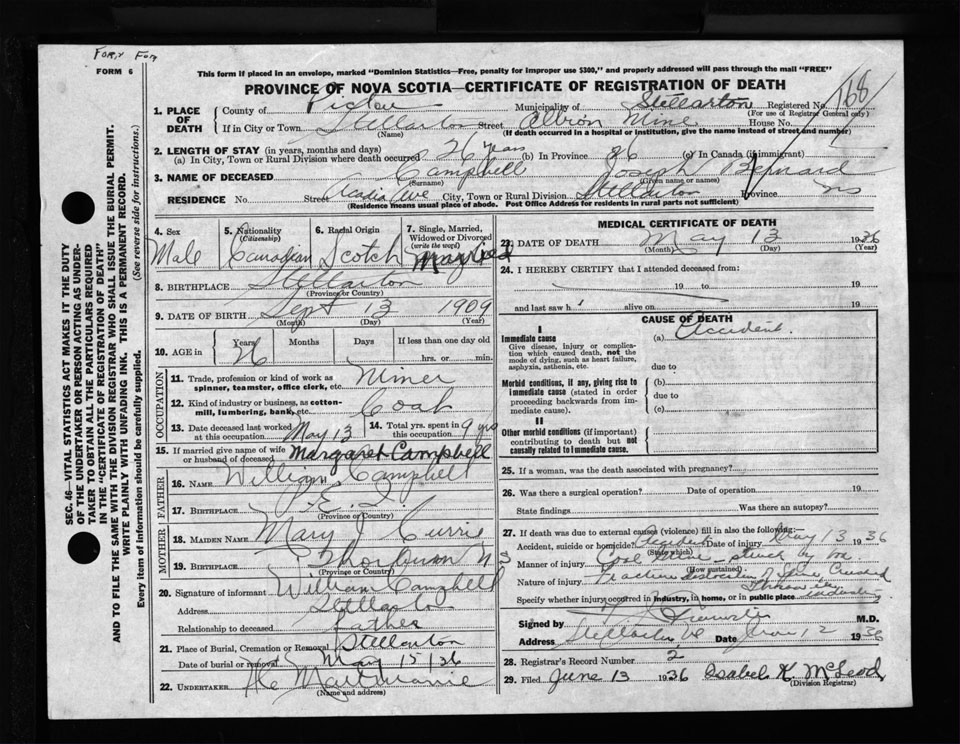 FORM 6
This form if placed in an envelope, marked "Dominion Statistics—Free, penalty for improper use $300," and properly addressed will pass through the mail "FREE"
PROVINCE OF NOVA SCOTIA—CERTIFICATE OF REGISTRATION OF DEATH
168
1. PLACE OF DEATH County of Pictou Municipality of Stellarton Registered No.
(For use of Registrar General only)
If in City or Town Stellarton Street Albion Mine House No.
(Name) (If death occurred in a hospital or institution, give the name instead of street and number)
2. LENGTH OF STAY (in years, months and days)
(a) In City, Town or Rural Division where death occurred 26 years (b) In Province 26 (c) In Canada (if immigrant)
3. NAME OF DECEASED Campbell Joseph Bernard
(Surname) (Given name or names)
RESIDENCE No. Street Acadia Ave City, Town or Rural Division Stellarton Province NS
(Residence means usual place of abode. Post Office Address for residents in rural parts not sufficient)
SEC. 46—VITAL STATISTICS ACT MAKES IT THE DUTY
OF THE UNDERTAKER OR PERSON ACTING AS UNDER-
TAKER TO OBTAIN ALL THE PARTICULARS REQUIRED
IN THE "CERTIFICATE OF REGISTRATION OF DEATH"
AND TO FILE THE SAME WITH THE DIVISION REGISTRAR WHO SHALL ISSUE THE BURIAL PERMIT.
WRITE PLAINLY WITH UNFADING INK. THIS IS A PERMANENT RECORD.
Every item of information should be carefully supplied. (See reverse side for instructions.)
4. Sex 5. Nationality (Citizenship) 6. Racial Origin 7. Single, Married, Widowed or Divorced (write the word)
Male Canadian Scotch Married
8. BIRTHPLACE Stellarton
(Province or Country)
9. DATE OF BIRTH Sept 13 1909
(Month) (Day) (Year)
10. AGE in Years Months Days If less than one day old
26 hrs. or min.
OCCUPATION
11. Trade, profession or kind of work as spinner, teamster, office clerk, etc. Miner
12. Kind of industry or business, as cotton-mill, lumbering, bank, etc. Coal
13. Date deceased last worked at this occupation May 13 14. Total yrs. spent in this occupation 9 yrs
15. If married give name of wife or husband of deceased Margaret Campbell
FATHER
16. NAME William Campbell
17. BIRTHPLACE P.E.I
(Province or Country)
MOTHER
18. MAIDEN NAME Mary J Currie
19. BIRTHPLACE Thorburn N S
(Province or Country)
20. Signature of informant William Campbell
Address Stellarton
Relationship to deceased father
21. Place of Burial, Cremation or Removal Stellarton
Date of burial or removal May 15/36
22. UNDERTAKER
(Name and address)
MEDICAL CERTIFICATE OF DEATH
23. DATE OF DEATH May 13 1936
(Month) (Day) (Year)
24. I HEREBY CERTIFY that I attended deceased from:
19 to 19
and last saw h alive on 19
CAUSE OF DEATH
I
Immediate cause (a) Accident.
Give disease, injury or complication which caused death, not the mode of dying, such as heart failure, asphyxia, asthenia, etc.
due to
Morbid conditions, if any, giving rise to immediate cause (stated in order proceeding backwards from immediate cause).
(b)
due to
(c)
II
Other morbid conditions (if important) contributing to death but not causally related to immediate cause.
25. If a woman, was the death associated with pregnancy?
26. Was there a surgical operation? Date of operation 19
State findings Was there an autopsy?
27. If death was due to external causes (violence) fill in also the following:—
Accident, suicide or homicide? Accident Date of injury May 13 1936
(State which)
Manner of injury Coal mine - struck by box
(How sustained)
Nature of injury Fracture dislocation of spine, Crushed
Specify whether injury occurred in industry, in home, or in public place industry
Signed by M.D.
Address Stellarton Date June 12 1936
28. Registrar's Record Number 2
29. Filed June 13 1936 Isabel K. McLeod
(Division Registrar)